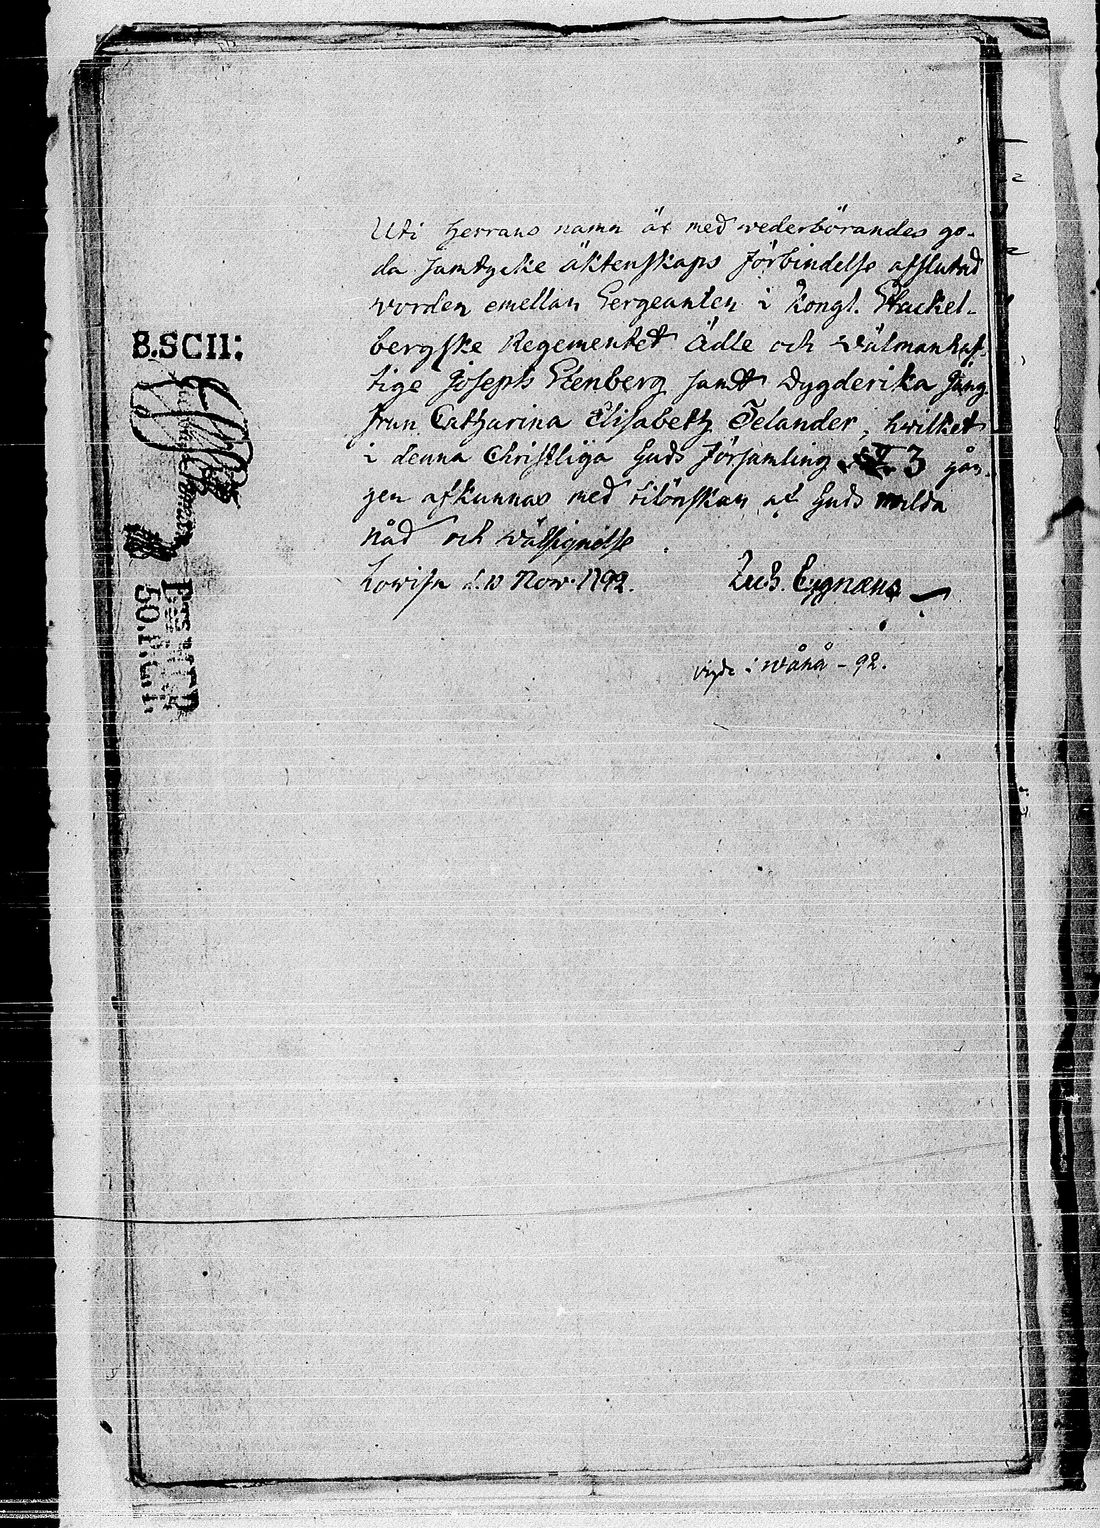 Uti Herrans namn är med vederbörandes go-
da samtycke äktenskaps förbindelse afslutad
worden emellan Sergeanten i Kongl. Stackel-
bergske Regementet Ädle och Wälmanhaf-
tige Joseph Stenberg samt Dygderika Jung-
frun Catharina Elisabeth Telander, hwilket
i denna Christliga Guds församling 3 gån-
gen afkunnas med tilönskan af Guds milda
nåd och wälsignelse
Lowisa d. 10 Nov. 1792. Zach. Cygnæus
vigde i Wånå - 92.
8.SCII: